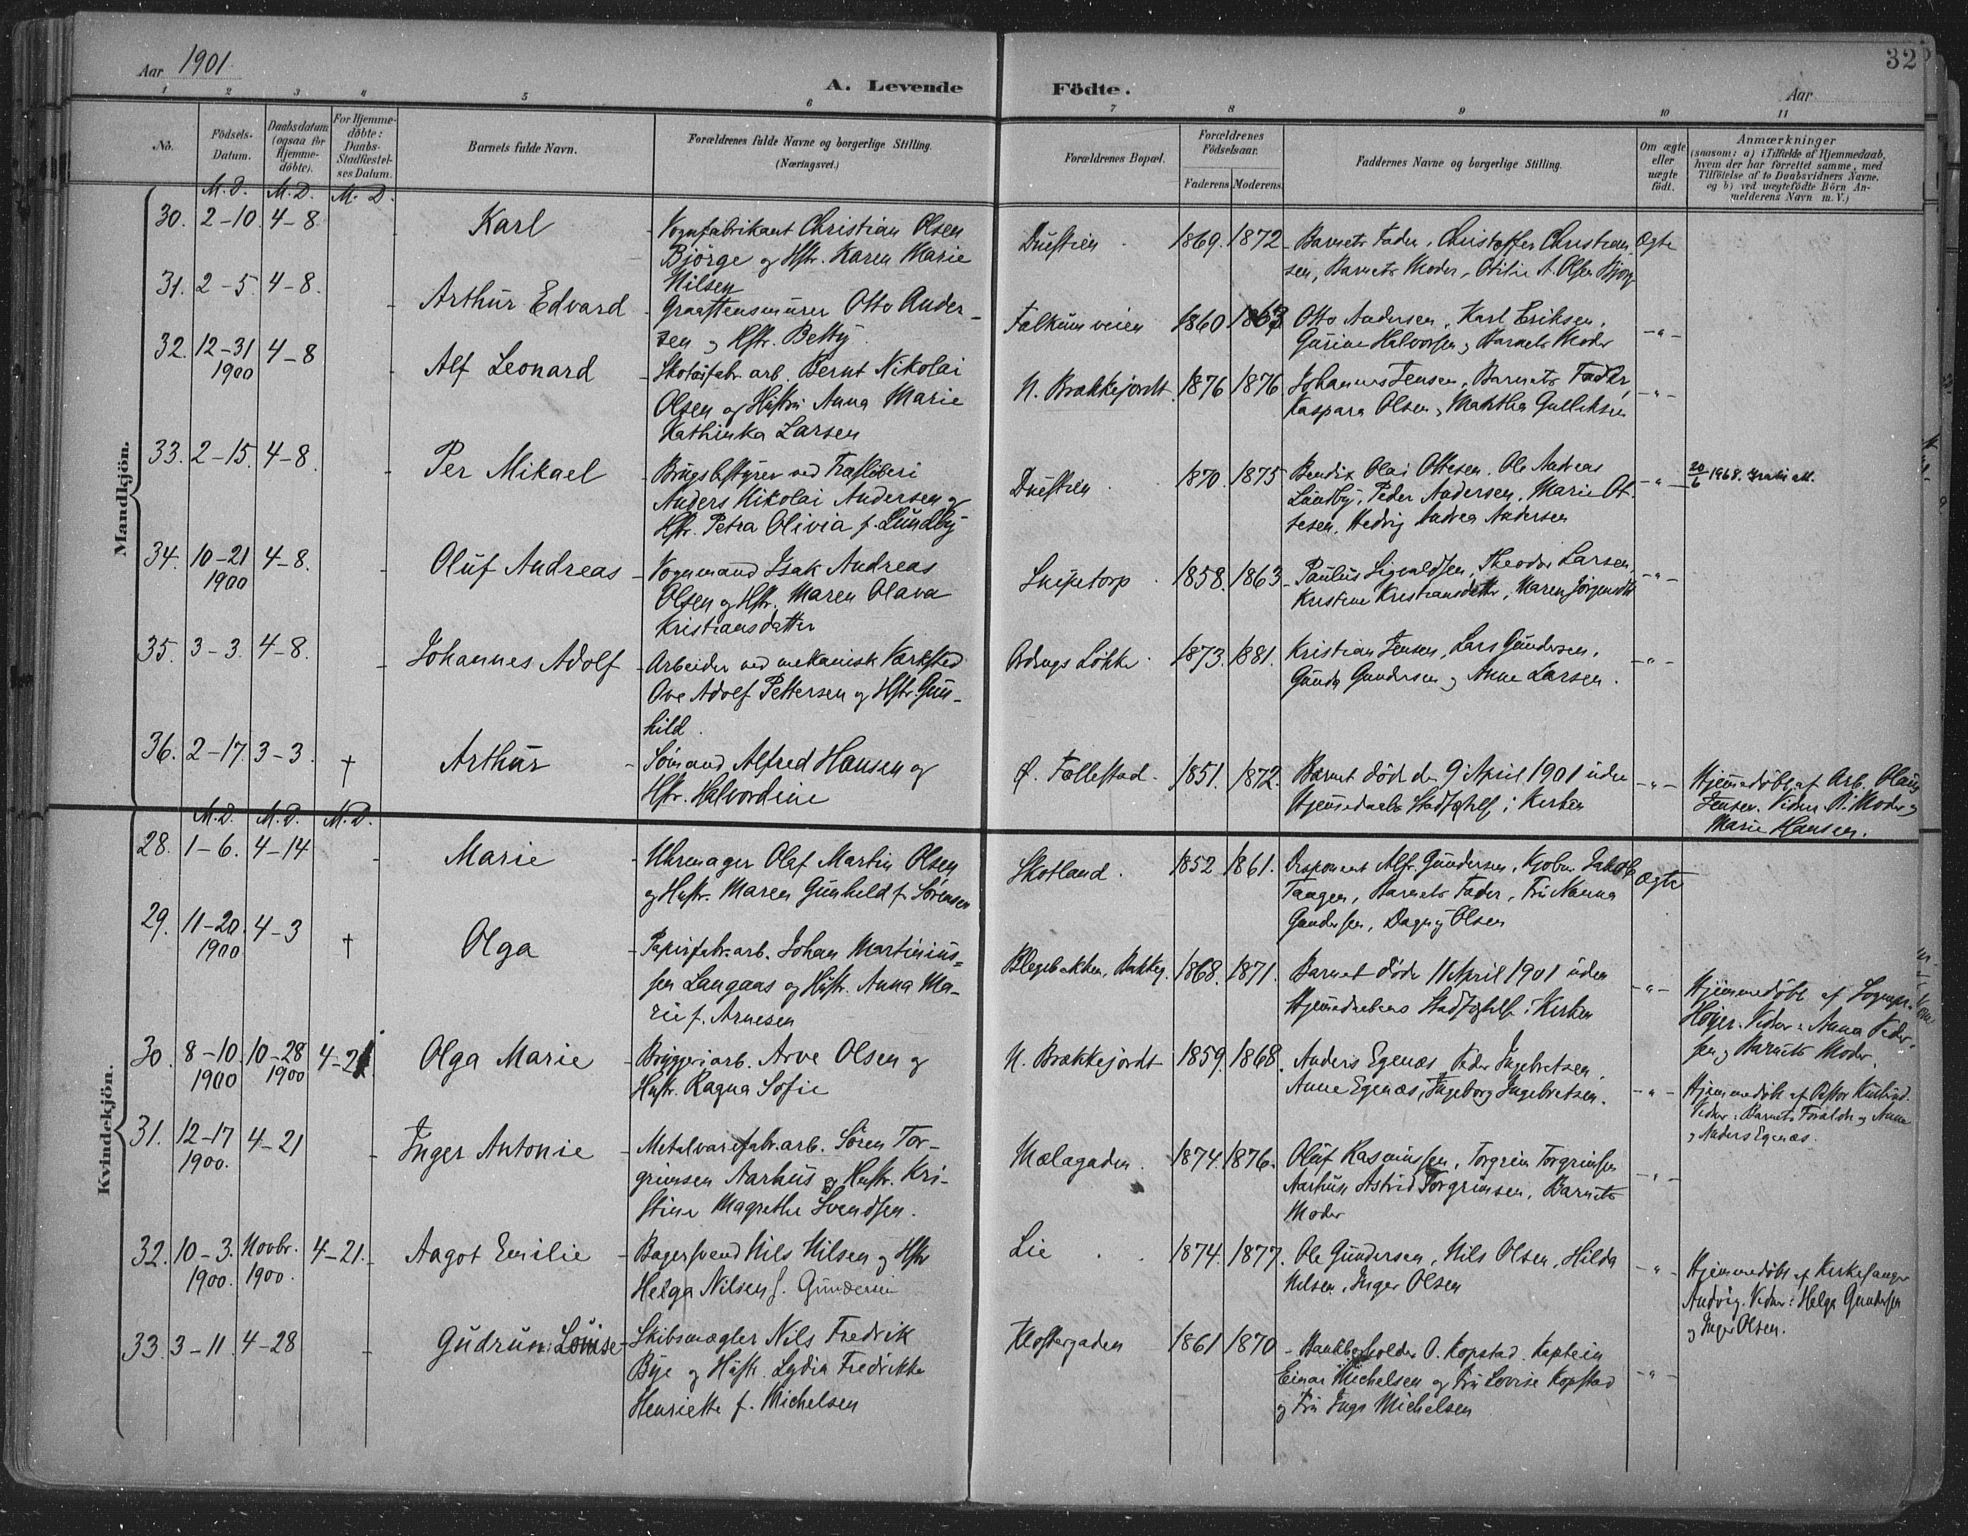 Aar 1901
A. Levende Födte.
Aar
32
1 2 3 4 5 6 7 8 9 10 11
No.
Födsels-Datum.
Daabsdatum (ogsaa for Hjemmedöbte).
For Hjemmedöbte: Daabs-Stadfæstelses Datum.
Barnets fulde Navn.
Forældrenes fulde Navne og borgerlige Stilling. (Næringsvei.)
Forældrenes Bopæl.
Forældrenes Födselsaar.
Faderens. Moderens.
Faddernes Navne og borgerlige Stilling.
Om ægte eller uægte födt.
Anmærkninger
(saasom: a) i Tilfælde af Hjemmedaab, hvem der har forrettet samme, med Tilföielse af to Daabsvidners Navne, og b) ved uægtefödte Börn Anmelderens Navn m. V.)
Mandkjön.
M. D. M. D. M. D.
30. 2-10 4-8 Karl
Vognfabrikant Christian Olsen
Bjørge og Hstr. Karen Marie
Nilsen
Duestien 1869. 1872
Barnets Fader, Christoffer Christian
sen, Barnets Moder, Otilie A. Olsen
Ægte
31. 2-5. 4-8. Arthur Edvard
Graastensmurer Otto Ander-
sen og Hstr. Betty
Falkumveien 1860
Otto Andersen, Karl Eriksen,
Gurine Halvorsen og Barnets Moder
-"-
32. 12-31 1900 4-8 Alf Leonard
Skotøifabr. arb. Bernt Nikolai
Olsen og Hustru Anna Marie
Kathinka Larsen
N. Brækkejordt. 1876 1876
Johannes Jensen, Barnets Fader,
Kaspara Olsen, Martha Gulliksen
-"-
33. 2-15. 4-8. Per Mikael
Brugsbestyrer ved Træsliberi
Anders Nikolai Andersen og
Hstr. Petra Olivia f. Lundby
Duestien 1870. 1875
Bendix Olai Ottesen, Ole Andreas
Lundby, Peder Andersen, Marie Ot-
tesen, Hedvig Andrea Andersen
-"- 20/6 1968. Gratis att.
34. 10-21 1900 4-8. Oluf Andreas
Vognmand Isak Andreas
Olsen og Hstr. Maren Olava
Kristiansdatter
Snipetorp 1858. 1863
Paulus Sigvaldsen, Theodor Larsen
Kristine Kristiansdatter, Maren Jörgensdtt
-"-
35. 3-3. 4-8. Johannes Adolf
Arbeider ved mekanisk Værksted
Ove Adolf Pettersen og Hstr. Gun-
hild.
Løkke 1873. 1881.
Kristian Jensen, Lars Gundersen,
Gunda Gundersen og Anne Larsen.
-"-
36. 2-17. 3-3. † Arthur
Sömand Alfred Hansen og
Hstr. Halvordine
Ø. Follestad. 1851. 1872.
Barnet döde den 9 April 1901 uden
Hjemmedaabs Stadfæstelse i Kirken
-"- Hjemmedöbt af Arb. Olaus
Jensen. Vidner B. Moder og
Marie Hansen.
Kvindekjön.
M. D. M. D. M. D.
28. 1-6. 4-14 Marie
Uhrmager Olaf Martin Olsen
og Hustr. Maren Gunhild f. Sörensen
Skotland. 1852 1861.
Disponent Alf. Gundersen, Kjøbm. Jakob
Taagen, Barnets Fader, Fru Nanna
Gundersen, Dagny Olsen
Ægte
29. 11-20. 1900 4-3 † Olga
Papirfabr. arb. Johan Martinius-
sen Langaas og Hustr. Anna Ma-
rie f. Arnesen
Blegebakken, Bakkeg. 1868. 1871.
Barnet döde 11 April 1901 uden
Hjemmedaabens Stadfæstelse i Kirken
-"- Hjemmedöbt af Sognepr.
Høyer. Vidner: Anna Peder-
sen og Barnets Moder.
30. 8-10. 1900 10-28 1900 4-21 Olga Marie
Bryggeriarb. Arve Olsen og
Hustr. Ragna Sofie
N. Brækkejordt 1859. 1868.
Anders Egenæs, Peder Ingebretsen,
Anne Egenæs, Ingeborg Ingebretsen.
-"- Hjemmedöbt af Pastor
Vidner: Barnets Forældre og Anne
og Anders Egenæs.
31. 12-17 1900. 4-21 Inger Antonie
Metalvarefabr. arb. Sören Tor-
grimsen Aarhus og Hustr. Kri-
stine Magrethe Svendsen.
Mælagaden. 1874. 1876.
Oluf Rasmussen, Torgrim Torgrimsen
Aarhus, Astrid Torgrimsen, Barnets
Moder
-"-
32. 10-3. 1900. Novbr. 1900. 4-21. Aagot Emilie
Bagersvend Nils Nilsen og Hstr
Helga Nilsen f. Gundersen
Lie 1874. 1877.
Ole Gundersen, Nils Olsen, Hilda
Nilsen, Inger Olsen
-"- Hjemmedöbt af Kirkesanger
Andvig. Vidner: Helga Gundersen
og Inger Olsen.
33. 3-11. 4-28 Gudrun Louise
Skibsmægler Nils Fredrik
Bye og Hustr. Lydia Fredrikke
Henriette f. Michelsen
Klostergaden 1861 1870
Bankbogholder O. Kopstad, Kaptein
Einar Michelsen og Fru Lovise Kopstad
og Fru Inga Michelsen
-"-